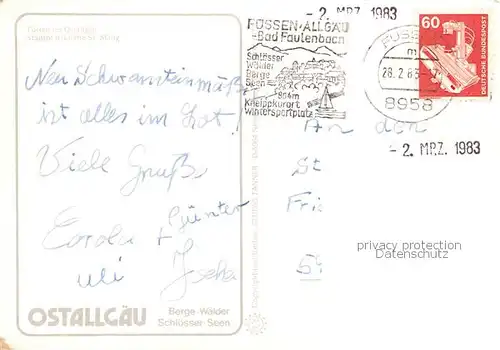 - 2. MRZ. 1983
FÜSSEN-ALLGÄU
-Bad Faulenbach
Schlösser
Wälder
Berge
Seen
Kneippkurort
Wintersportplatz
28.2.83
8958
60
DEUTSCHE BUNDESPOST
Neu Schwanstein
ist alles im Lot!
Viele Grüße
Günter
Carola +
Uli
An den
St
Fri
- 2. MRZ. 1983
privacy protection
Datenschutz
OSTALLGÄU
Berge Wälder
Schlösser Seen